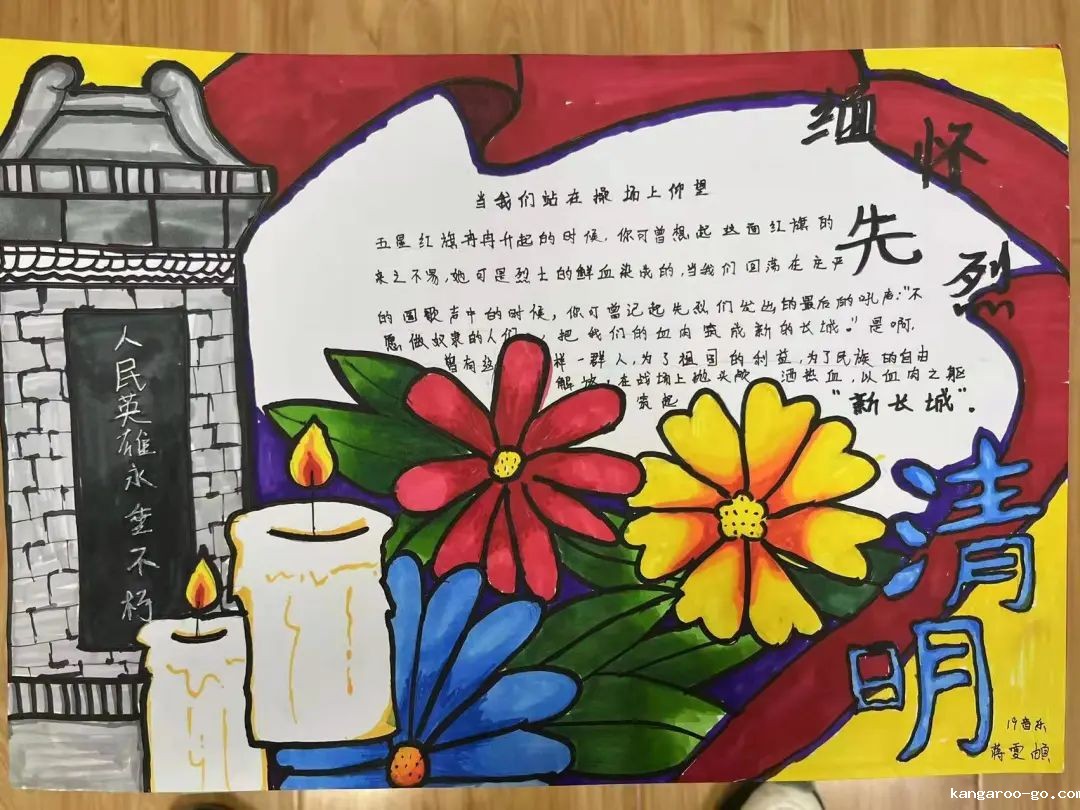 缅怀先烈
当我们站在操场上仰望
五星红旗冉冉升起的时候,你可曾想起这面红旗的
来之不易,她可是烈士的鲜血染成的,当我们回荡在庄严
的国歌声中的时候,你可曾记起先烈们发出的最后的吼声:"不
愿做奴隶的人们,把我们的血肉筑成新的长城。"是啊,
曾有这样一群人,为了祖国的利益,为了民族的自由
解放,在战场上抛头颅 洒热血,以血肉之躯
筑起"新长城"。
人民英雄永垂不朽
清明
19音乐
蒋雯
kangaroo-go.com